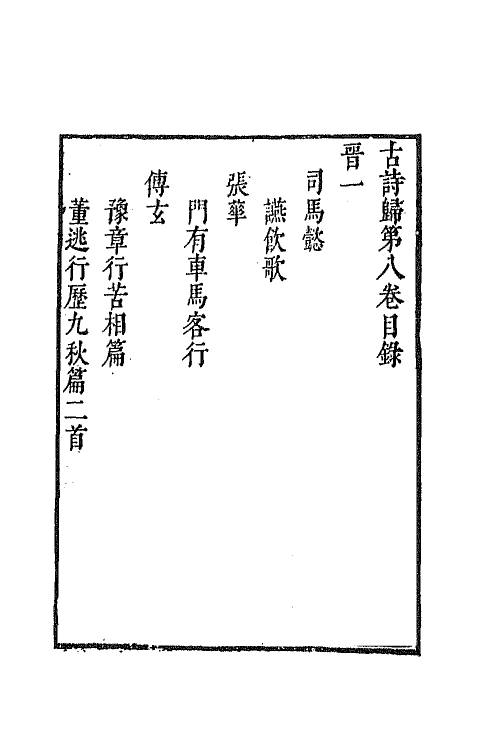 古詩歸第八卷目錄
晉一
司馬懿
讌飲歌
張華
門有車馬客行
傅玄
豫章行苦相篇
董逃行歷九秋篇二首